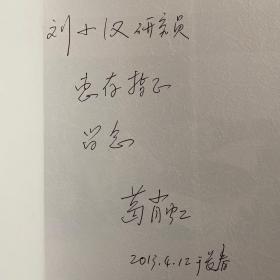 刘小汉研究员
惠存指正
留念
葛肖虹
2013.4.12 于长春